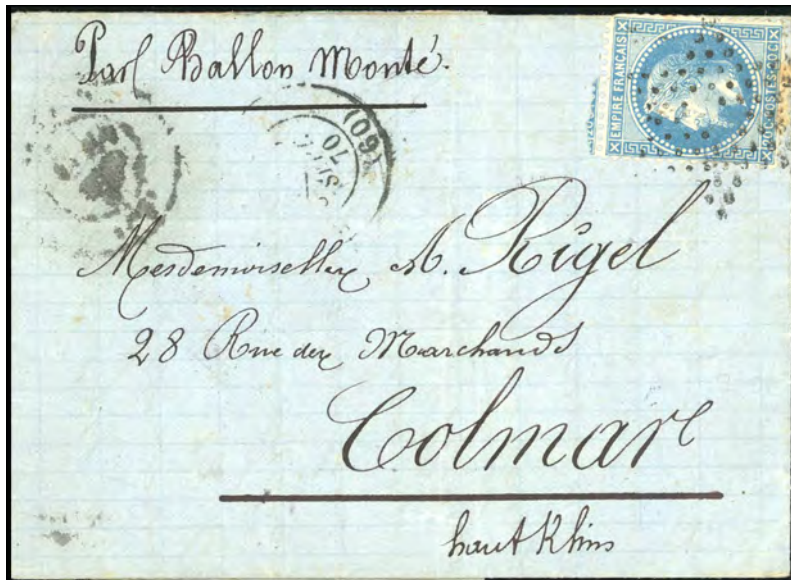 Par Ballon Monté.
EMPIRE FRANÇAIS
20c POSTES 20c
(60)
70
Mesdemoiselles A. Rigel
28 Rue des Marchands
Colmar
haut Rhin